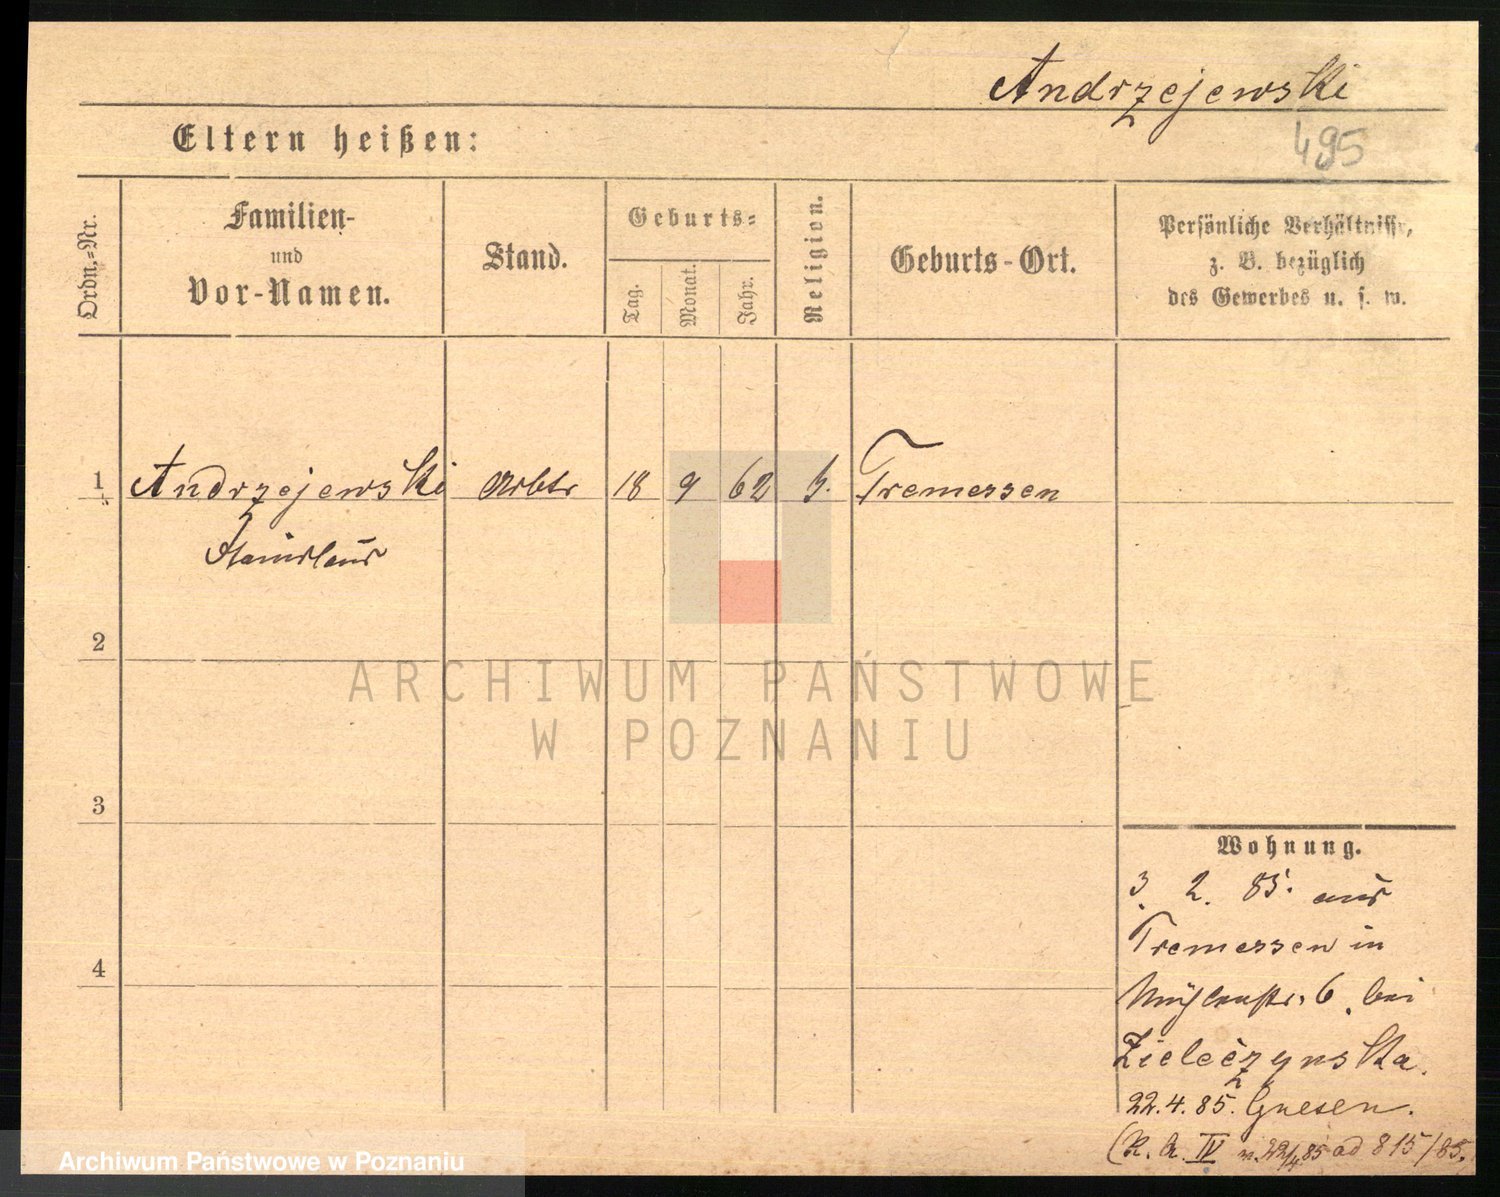 Andrzejewski
495
Eltern heißen:
Ordn.-Nr.
Familien-
und
Vor-Namen.
Stand.
Geburts-
Tag.
Monat.
Jahr.
Religion.
Geburts-Ort.
Persönliche Verhältnisse,
z. B. bezüglich
des Gewerbes u. s. w.
1 Andrzejewski Arbtr 18 9 62 k. Tremessen
Stanislaus
2
ARCHIWUM PAŃSTWOWE
W POZNANIU
3
Wohnung.
3. 2. 85. aus
Tremessen in
4
Mühlenstr. 6. bei
Zieleczynska.
22. 4. 85. Gnesen.
(R. A. IV v. 22/4 85 ad 815/85.
Archiwum Państwowe w Poznaniu